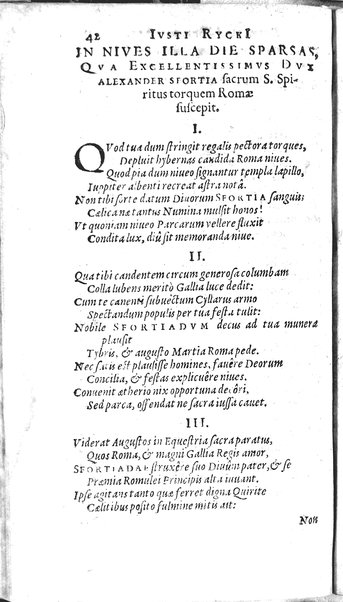 42 IVSTI RYCKI
IN NIVES ILLA DIE SPARSAS,
QVA EXCELLENTISSIMVS DVX
ALEXANDER SFORTIA sacrum S. Spi-
ritus torquem Romæ
suscepit.
I.
QVod tua dum stringit regalis pectora torques,
Depluit hybernas candida Roma niues.
Quod pia dum niueo signantur templa lapillo,
Iuppiter albenti recreat astra notâ.
Non tibi forte datum Diuorum SFORTIA sanguis;
Cælica nam tantus Numina mulsit honos!
Vt quoniam niueo Parcarum vellere fluxit
Condita lux, diu sit memoranda niue.
II.
Qua tibi candentem circum generosa columbam
Colla lubens meritò Gallia luce dedit:
Cum te canenti subuectum Cyllarus armo
Spectandum populis per tua festa tulit:
Nobile SFORTIADVM decus ad tua munera
plausit
Tybris, & augusto Martia Roma pede.
Nec satis est plausisse homines, fauêre Deorum
Concilia, & festas explicuêre niues.
Conuenit ætherio nix opportuna decôri,
Sed parca, offendat ne sacra iussa cauet.
III.
Viderat Augustos in Equestria sacra paratus,
Quos Roma, & magni Gallia Regis amor,
SFORTIADAE struxêre suo Diuûm pater, & se
Præmia Romulei Principis alta iuuant.
Ipse agitans tanto quæ ferret digna Quirite
Cælitibus posito fulmine mitis ait:
Non